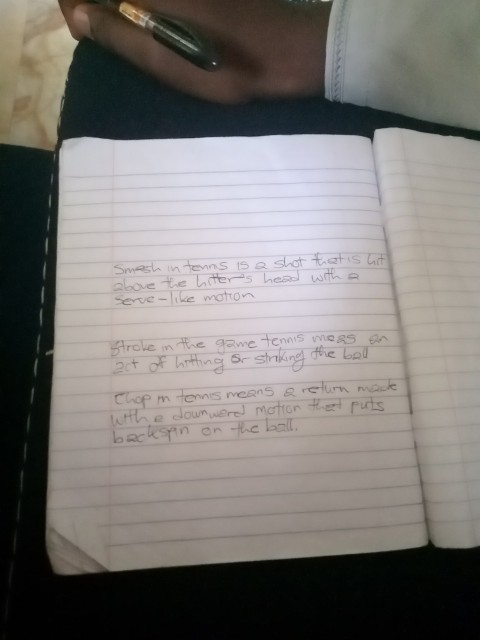 Smash in tennis is a shot that is hit
above the hitter's head with a
Serve-like motion
Stroke in the game tennis meas an
act of hitting or striking the ball
Chop in tennis means a return made
with a downward motion that puts
backspin on the ball.